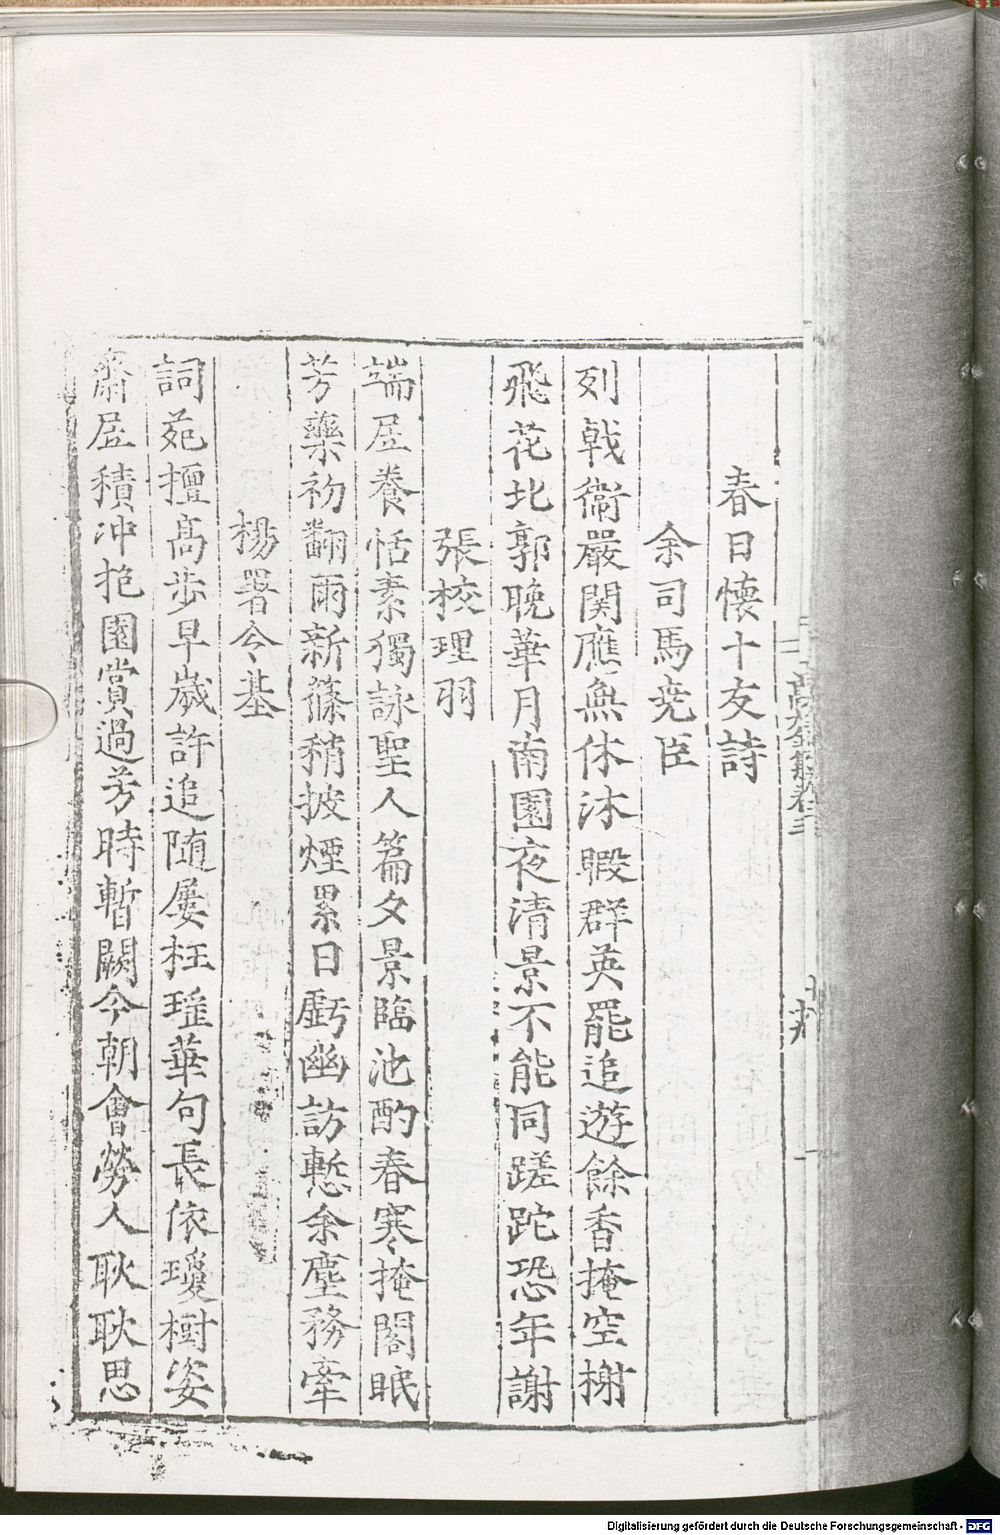 春日懷十友詩
余司馬尭臣
列戟衛嚴関應無休沐暇群英罷追遊餘香掩空榭
飛花北郭晚華月南園夜清景不能同蹉跎恐年謝
張校理羽
端居養恬素獨詠聖人篇夕景臨池酌春寒掩閣眠
芳藥初翻雨新篠稍披煙累日虧幽訪慙余塵務牽
楊署令基
詞苑擅高步早歲許追随屢枉瑶華句長依瓊樹姿
齋居積冲抱園賞過芳時暫闕今朝會勞人耿耿思
Digitalisierung gefördert durch die Deutsche Forschungsgemeinschaft - DFG